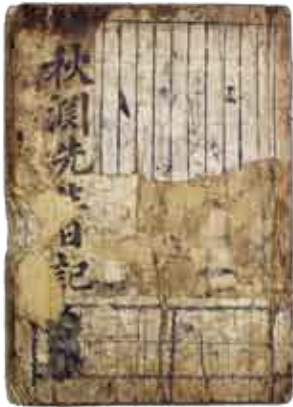 秋淵先生日記